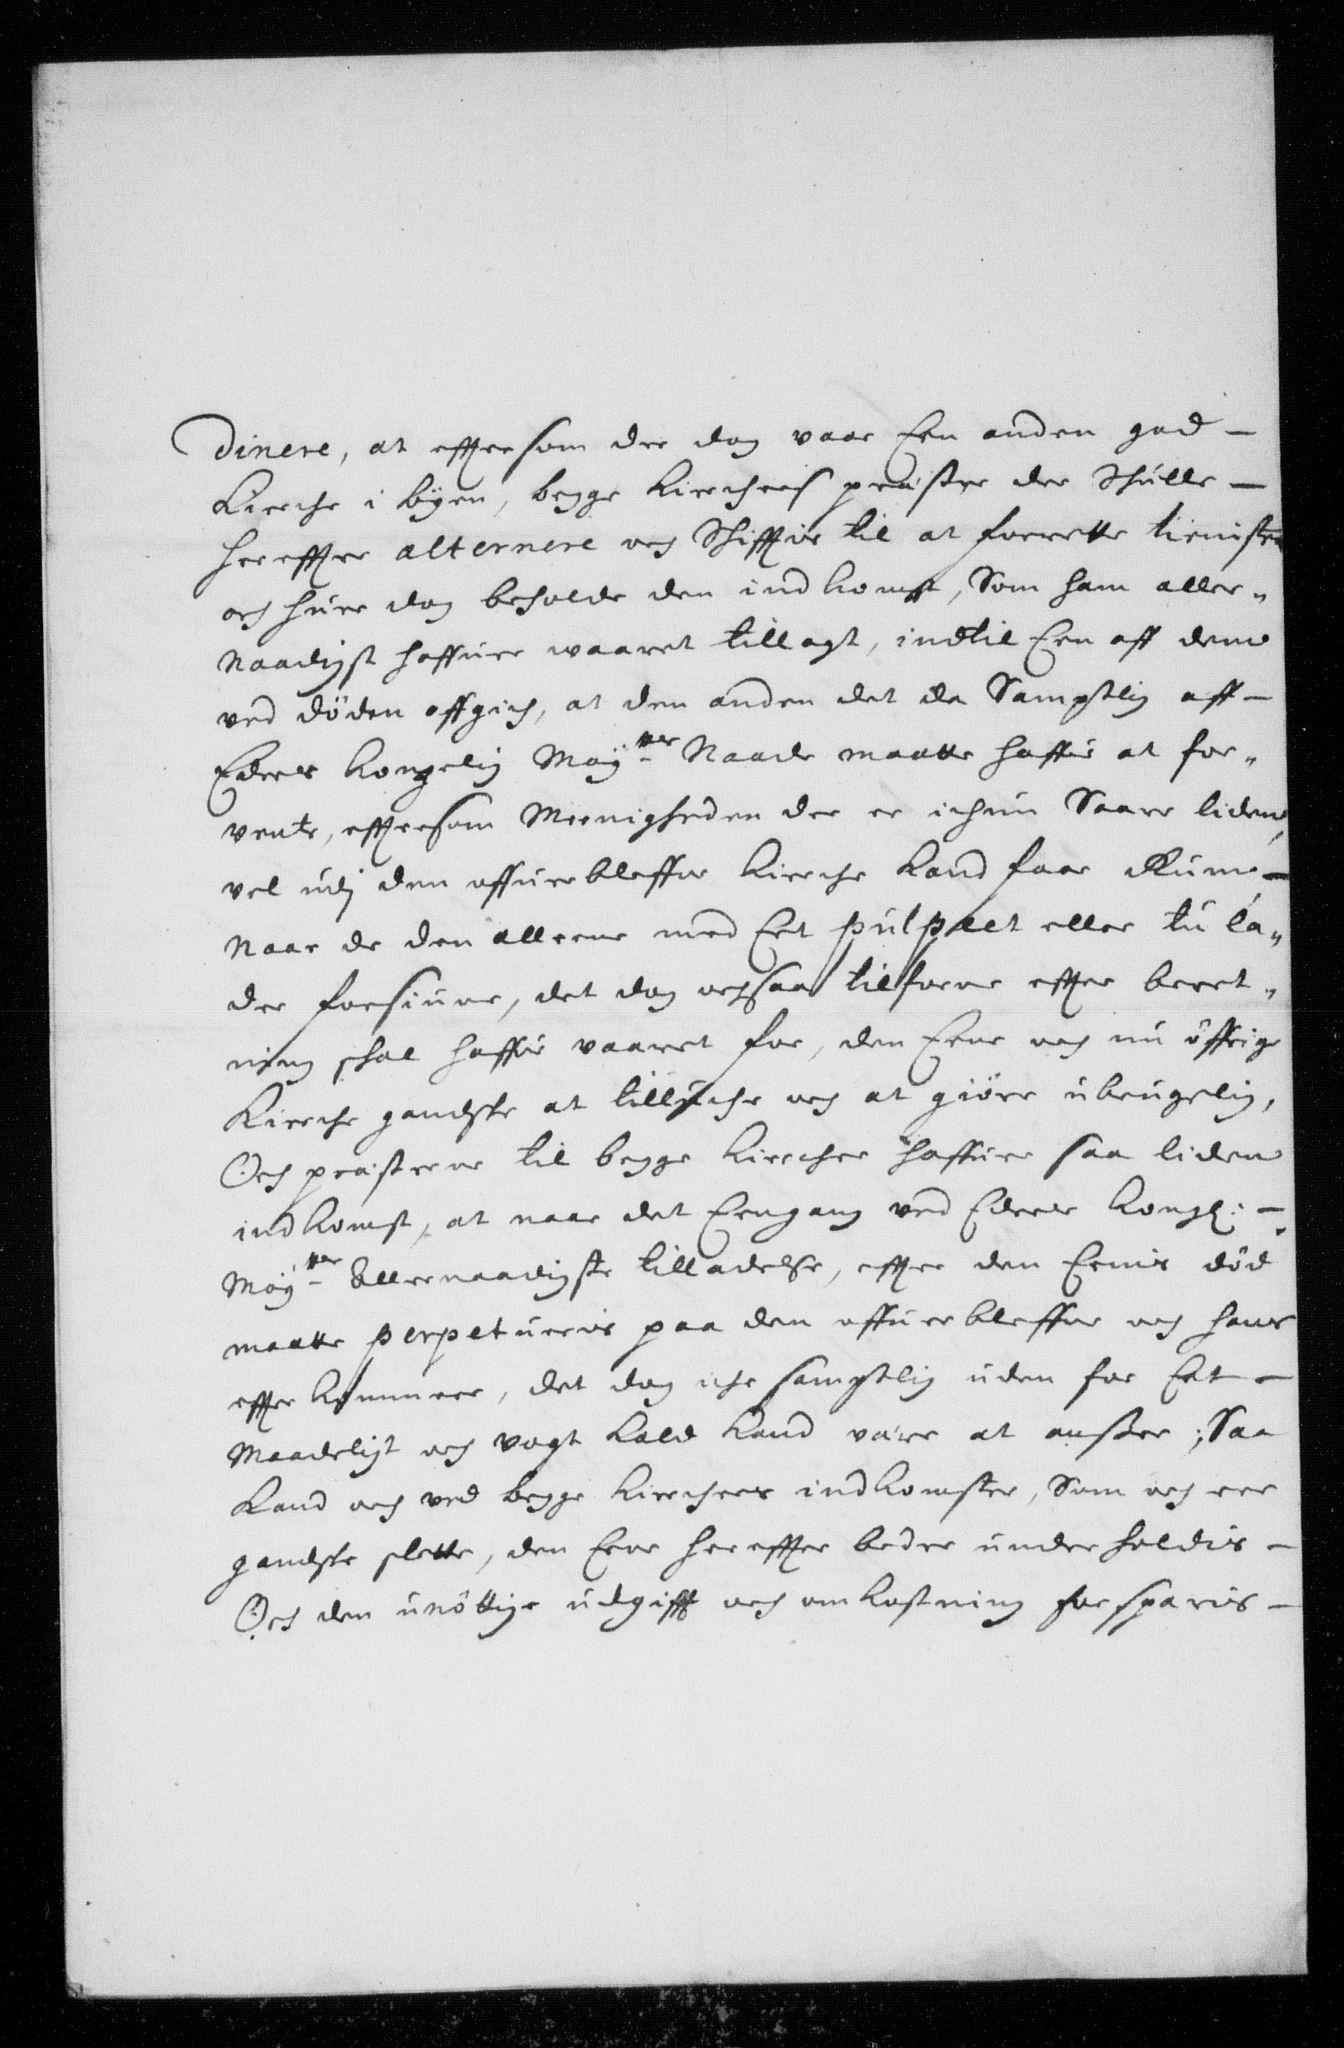 dinere, at efftersom der dog vaar Een anden god —
Kirche i byen, begge Kirchers præster der Schulle —
hereffter alternere och Schifftis til at forrette tienisten
och huer dog beholde den indkomst, Som ham aller„
Naadigst haffuer waaret tillagt, indtil Een aff dem
ved döden affgich, at den anden det da Samptlig aff —
Eders Kongelig Maÿ:tes Naade maatte haffue at for„
vente, efftersom Meenigheden der er ichun Saare liden,
vel udj den offuerblefne Kirche Kand faae Rum —
Naar de den alleene med Eet pulpeet eller tu la„
der forsiune, det dog ochsaa tilforne effter beret„
ning schal haffue vaaret for, den Eene och nu öffrige
Kirche gandske at tilluche och at giöre ubrugelig,
Och præsterne til begge Kircher haffuer saa liden
indkomst, at naar det Eengang ved Eders Kongl: —
Maÿ:tes Allernaadigste tilladelse, effter den Eenis död
maatte perpetueris paa den offuerblefne och hans
effterkommere, det dog iche samptlig uden for Eet —
Maadeligt och ringe Kald Kand være at ansee; Saa
Kand och ved begge Kirchers indkomster, Som och ere
gandske slette, den Eene hereffter bedre underholdis —
Och den unöttige udgifft och omkostning forsparis —